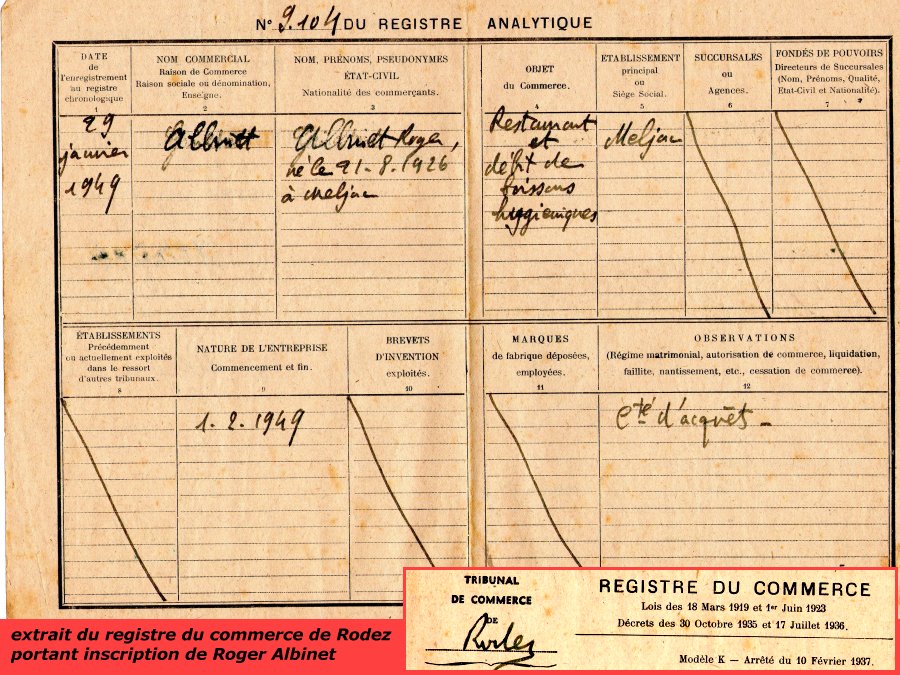 N° 9.104 DU REGISTRE ANALYTIQUE
DATE
de
l'enregistrement
au registre
chronologique
1
NOM COMMERCIAL
Raison de Commerce
Raison sociale ou dénomination,
Enseigne.
2
NOM, PRÉNOMS, PSEUDONYMES
ÉTAT-CIVIL
Nationalité des commerçants.
3
OBJET
du Commerce.
4
ETABLISSEMENT
principal
ou
Siège Social.
5
SUCCURSALES
ou
Agences.
6
FONDÉS DE POUVOIRS
Directeurs de Succursales
(Nom, Prénoms, Qualité,
Etat-Civil et Nationalité).
7
29
janvier
1949
Albinet
Albinet Roger,
né le 21-8-1926
à Meljac
Restaurant
et
débit de
boissons
hygieniques
Meljac
ÉTABLISSEMENTS
Précédemment
ou actuellement exploités
dans le ressort
d'autres tribunaux.
8
NATURE DE L'ENTREPRISE
Commencement et fin.
9
BREVETS
D'INVENTION
exploités.
10
MARQUES
de fabrique déposées,
employées.
11
OBSERVATIONS
(Régime matrimonial, autorisation de commerce, liquidation,
faillite, nantissement, etc., cessation de commerce).
12
1. 2. 1949
Cté d'acquêts -
TRIBUNAL
DE COMMERCE
DE
Rodez
REGISTRE DU COMMERCE
Lois des 18 Mars 1919 et 1er Juin 1923
Décrets des 30 Octobre 1935 et 17 Juillet 1936.
Modèle K — Arrêté du 10 Février 1937.
extrait du registre du commerce de Rodez
portant inscription de Roger Albinet